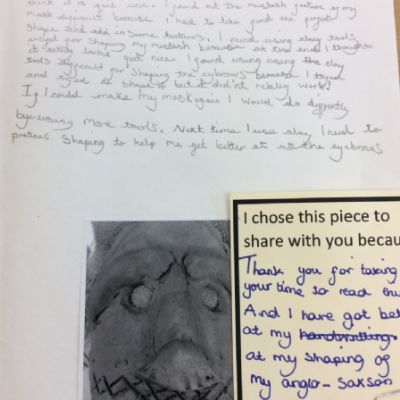 think it is quit nice. I found out the mustash feature of my
mask difficult because I had to like find the perfect
shape and add in some textures. I found using clay tools
usefull for shaping my mustash because at the end I thought
it actily looked quit nice. I found using using the clay
tools difficult for shaping the eyebrows because I tryed
and tryed to shape it but it didn't relley work!
If I could make my mask again I would do diffrently
by using more tools. Next time I use clay I need to
pratices shaping to help me get better at at the eyebrows
I chose this piece to
share with you becau
Thank you for taking
your time to read
And I have got bet
at my handwriting.
at my shaping of
my anglo-saxson